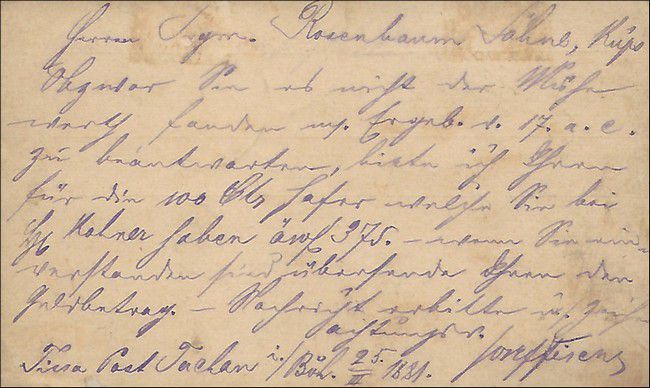 Herren Sigm. Rosenbaum Söhne, Küps
Obzwar Sie es nicht der Mühe
werth fanden m. Ergeb. v. 17. a. c.
zu beantworten, biete ich Ihnen
für die 100 Ctr Hafer welche Sie bei
Kohner haben öwf 375. – wenn Sie ein-
verstanden sind übersende Ihnen den
Geldbetrag. – Nachricht erbitte u. zeichne
Achtungsv.
Tissa Post Tachau i./Böh. 25. 1881.